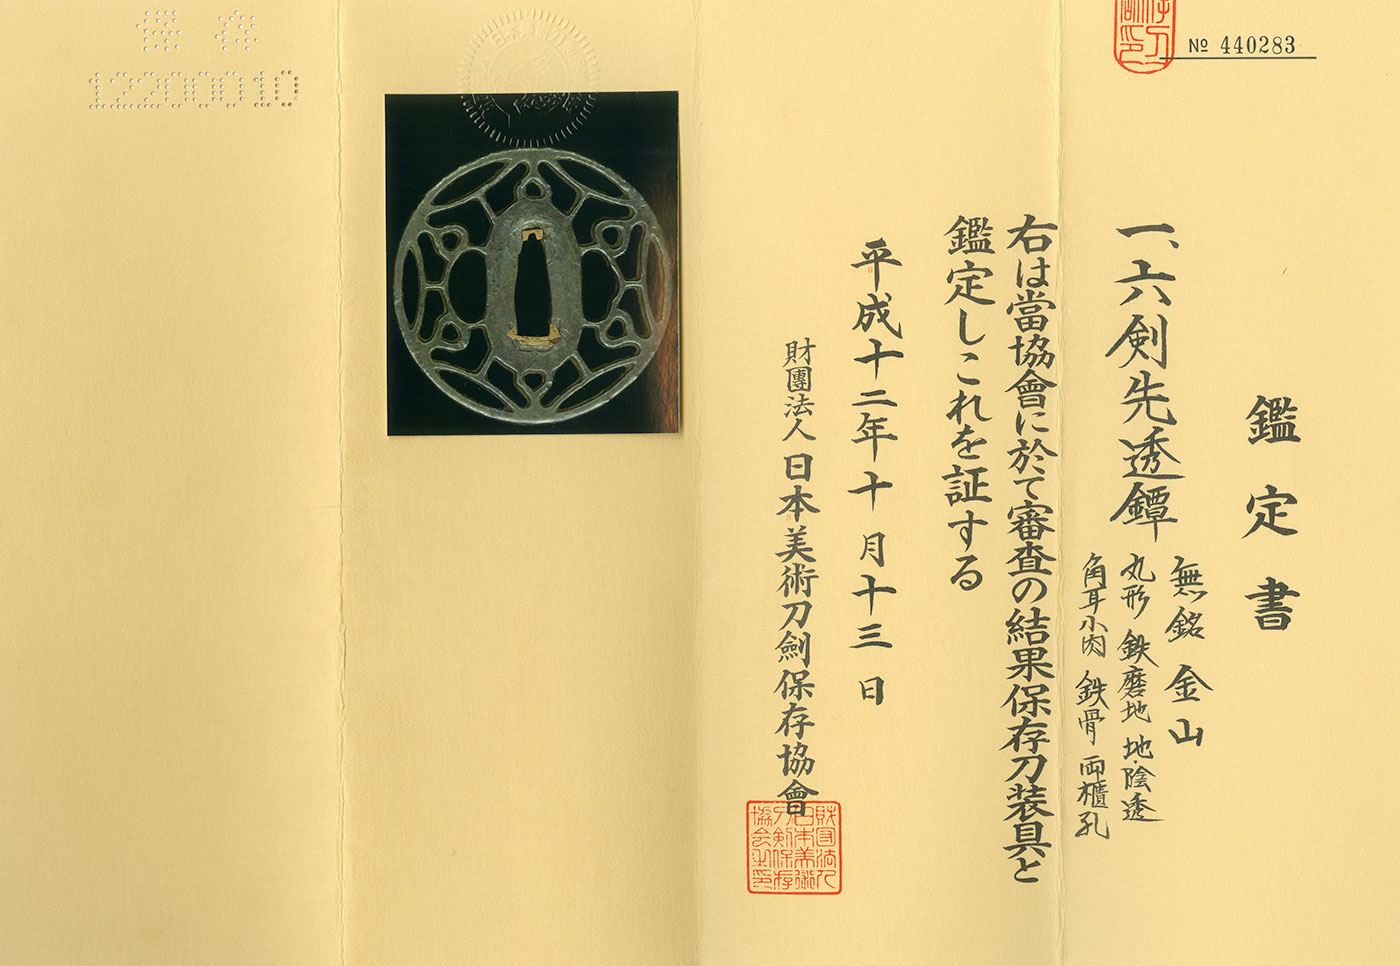 № 440283
鑑定書
一、六剣先透鐔
無銘 金山
丸形 鉄磨地 地・陰透
角耳小肉 鉄骨 両櫃孔
右は當協會に於て審査の結果保存刀装具と
鑑定しこれを証する
平成十二年十月十三日
財團法人 日本美術刀劍保存協會
財団法人
日本美術
刀剣保存
協会之印
保存
12200010